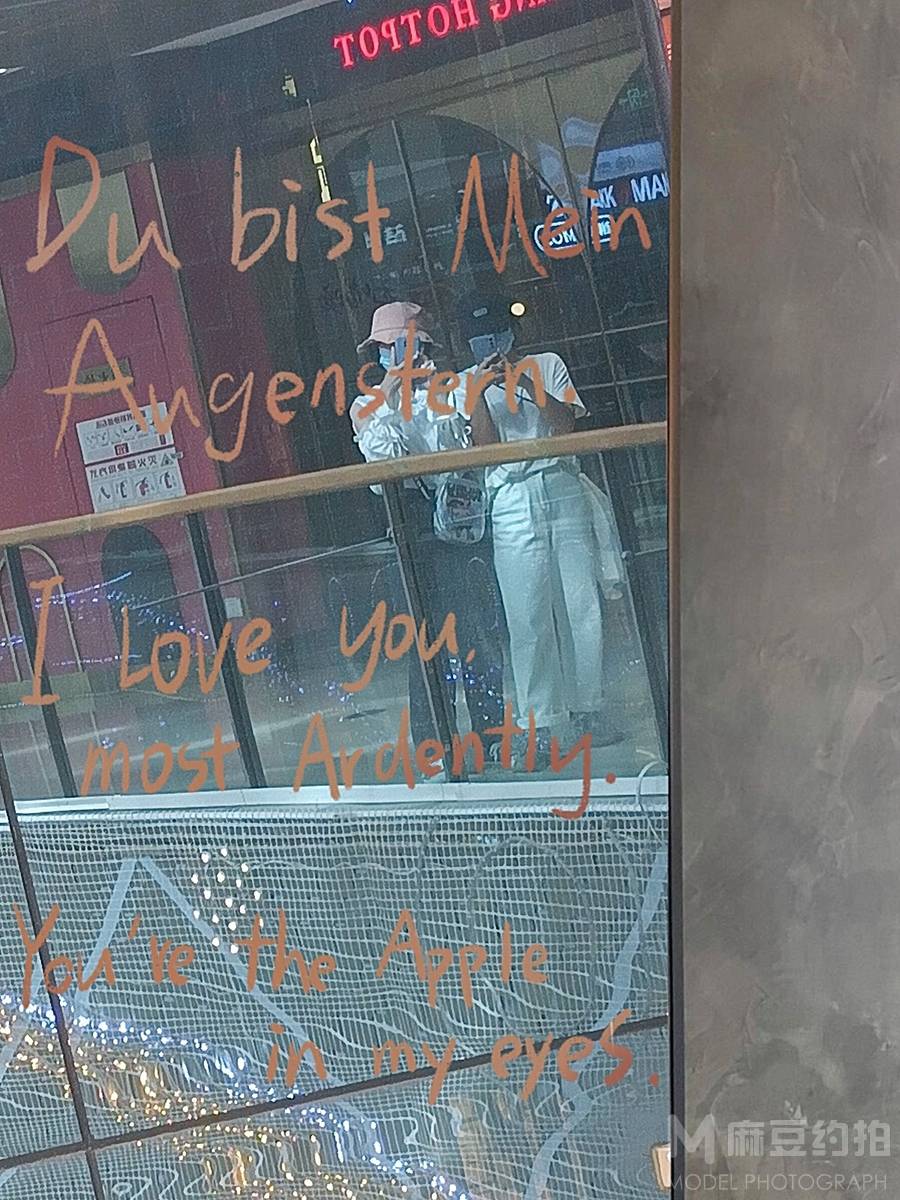 HOTPOT
Du bist Mein
Augenstern.
I Love you,
most Ardently.
You're the Apple
in my eyes.
麻豆约拍
MODEL PHOTOGRAPH